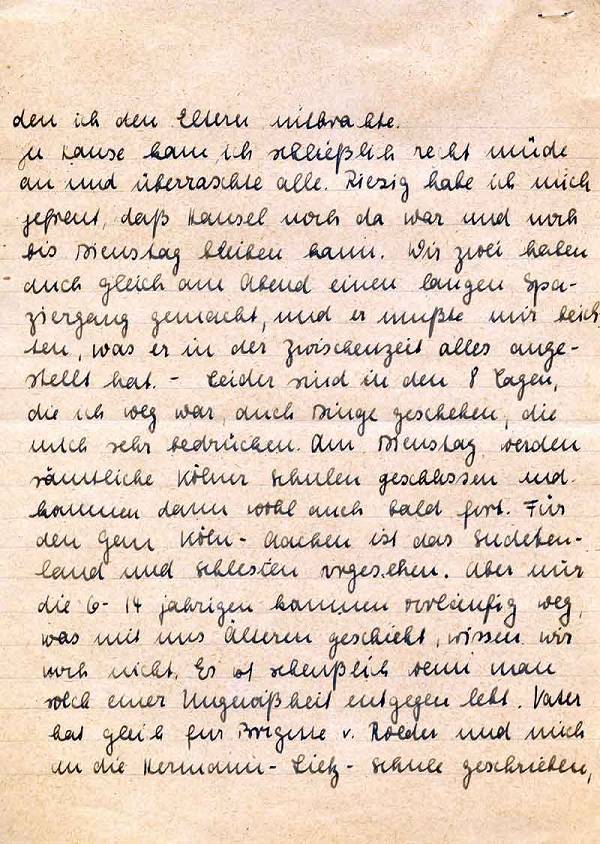 den ich den Eltern mitbrachte.
Zu Hause kam ich schließlich recht müde
an und überraschte alle. Riesig habe ich mich
gefreut, daß Hansel noch da war und noch
bis Dienstag bleiben kann. Wir zwei haben
auch gleich am Abend einen langen Spa-
ziergang gemacht, und er mußte mir beich-
ten, was er in der Zwischenzeit alles ange-
stellt hat. - Leider sind in den 8 Tagen,
die ich weg war, auch Dinge geschehen, die
mich sehr bedrücken. Am Dienstag werden
sämtliche Kölner Schulen geschlossen und
kommen dann wohl auch bald fort. Für
den Gau Köln - Aachen ist das Sudeten-
land und Schlesien vorgesehen. Aber nur
die 6 - 14 jährigen kommen vorläufig weg,
was mit uns Älteren geschieht, wissen wir
noch nicht. Es ist scheußlich wenn man
solch einer Ungewißheit entgegen lebt. Vater
hat gleich für Brigitte v. Roeder und mich
an die Hermann - Lietz - Schule geschrieben,